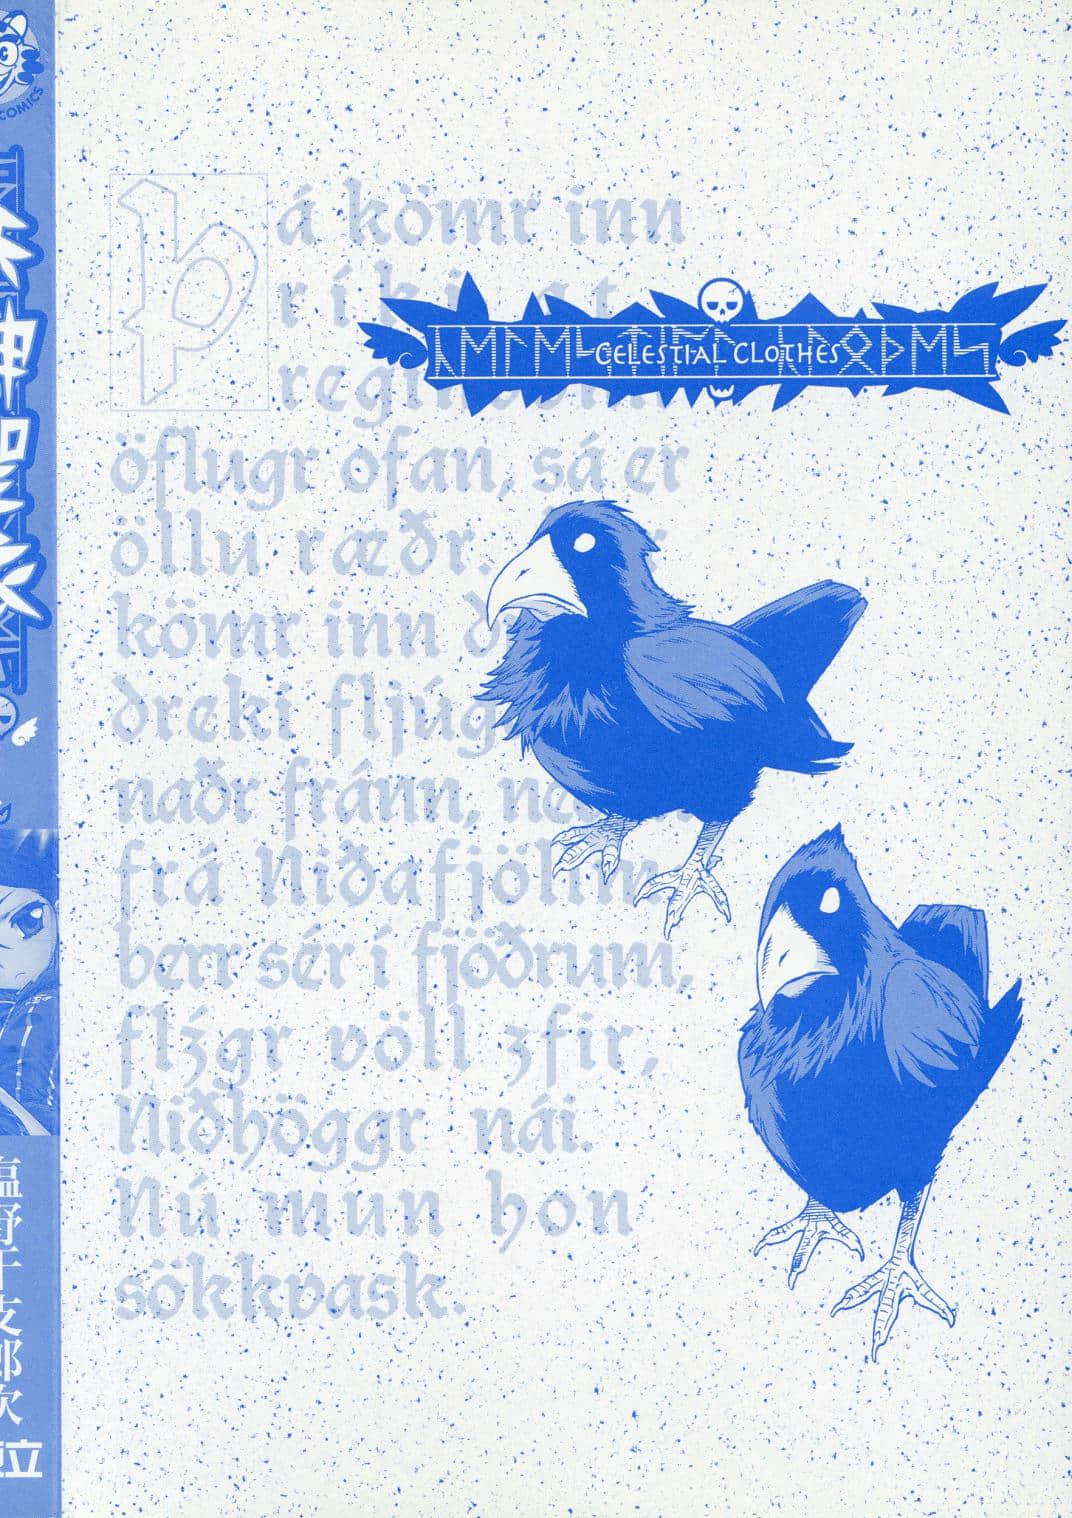 COMICS
塩野干支郎次
Þá kömr inn
ríki at
regin
öflugr ofan, sá er
öllu ræðr.
kömr inn
ðreki fljúg
naðr fránn, ne
frá Niðafjöllum
berr sér í fjöðrum,
flȝgr völl ȝfir,
Niðhöggr nái.
Nú mun hon
sökkvask.
CELESTIAL CLOTHES